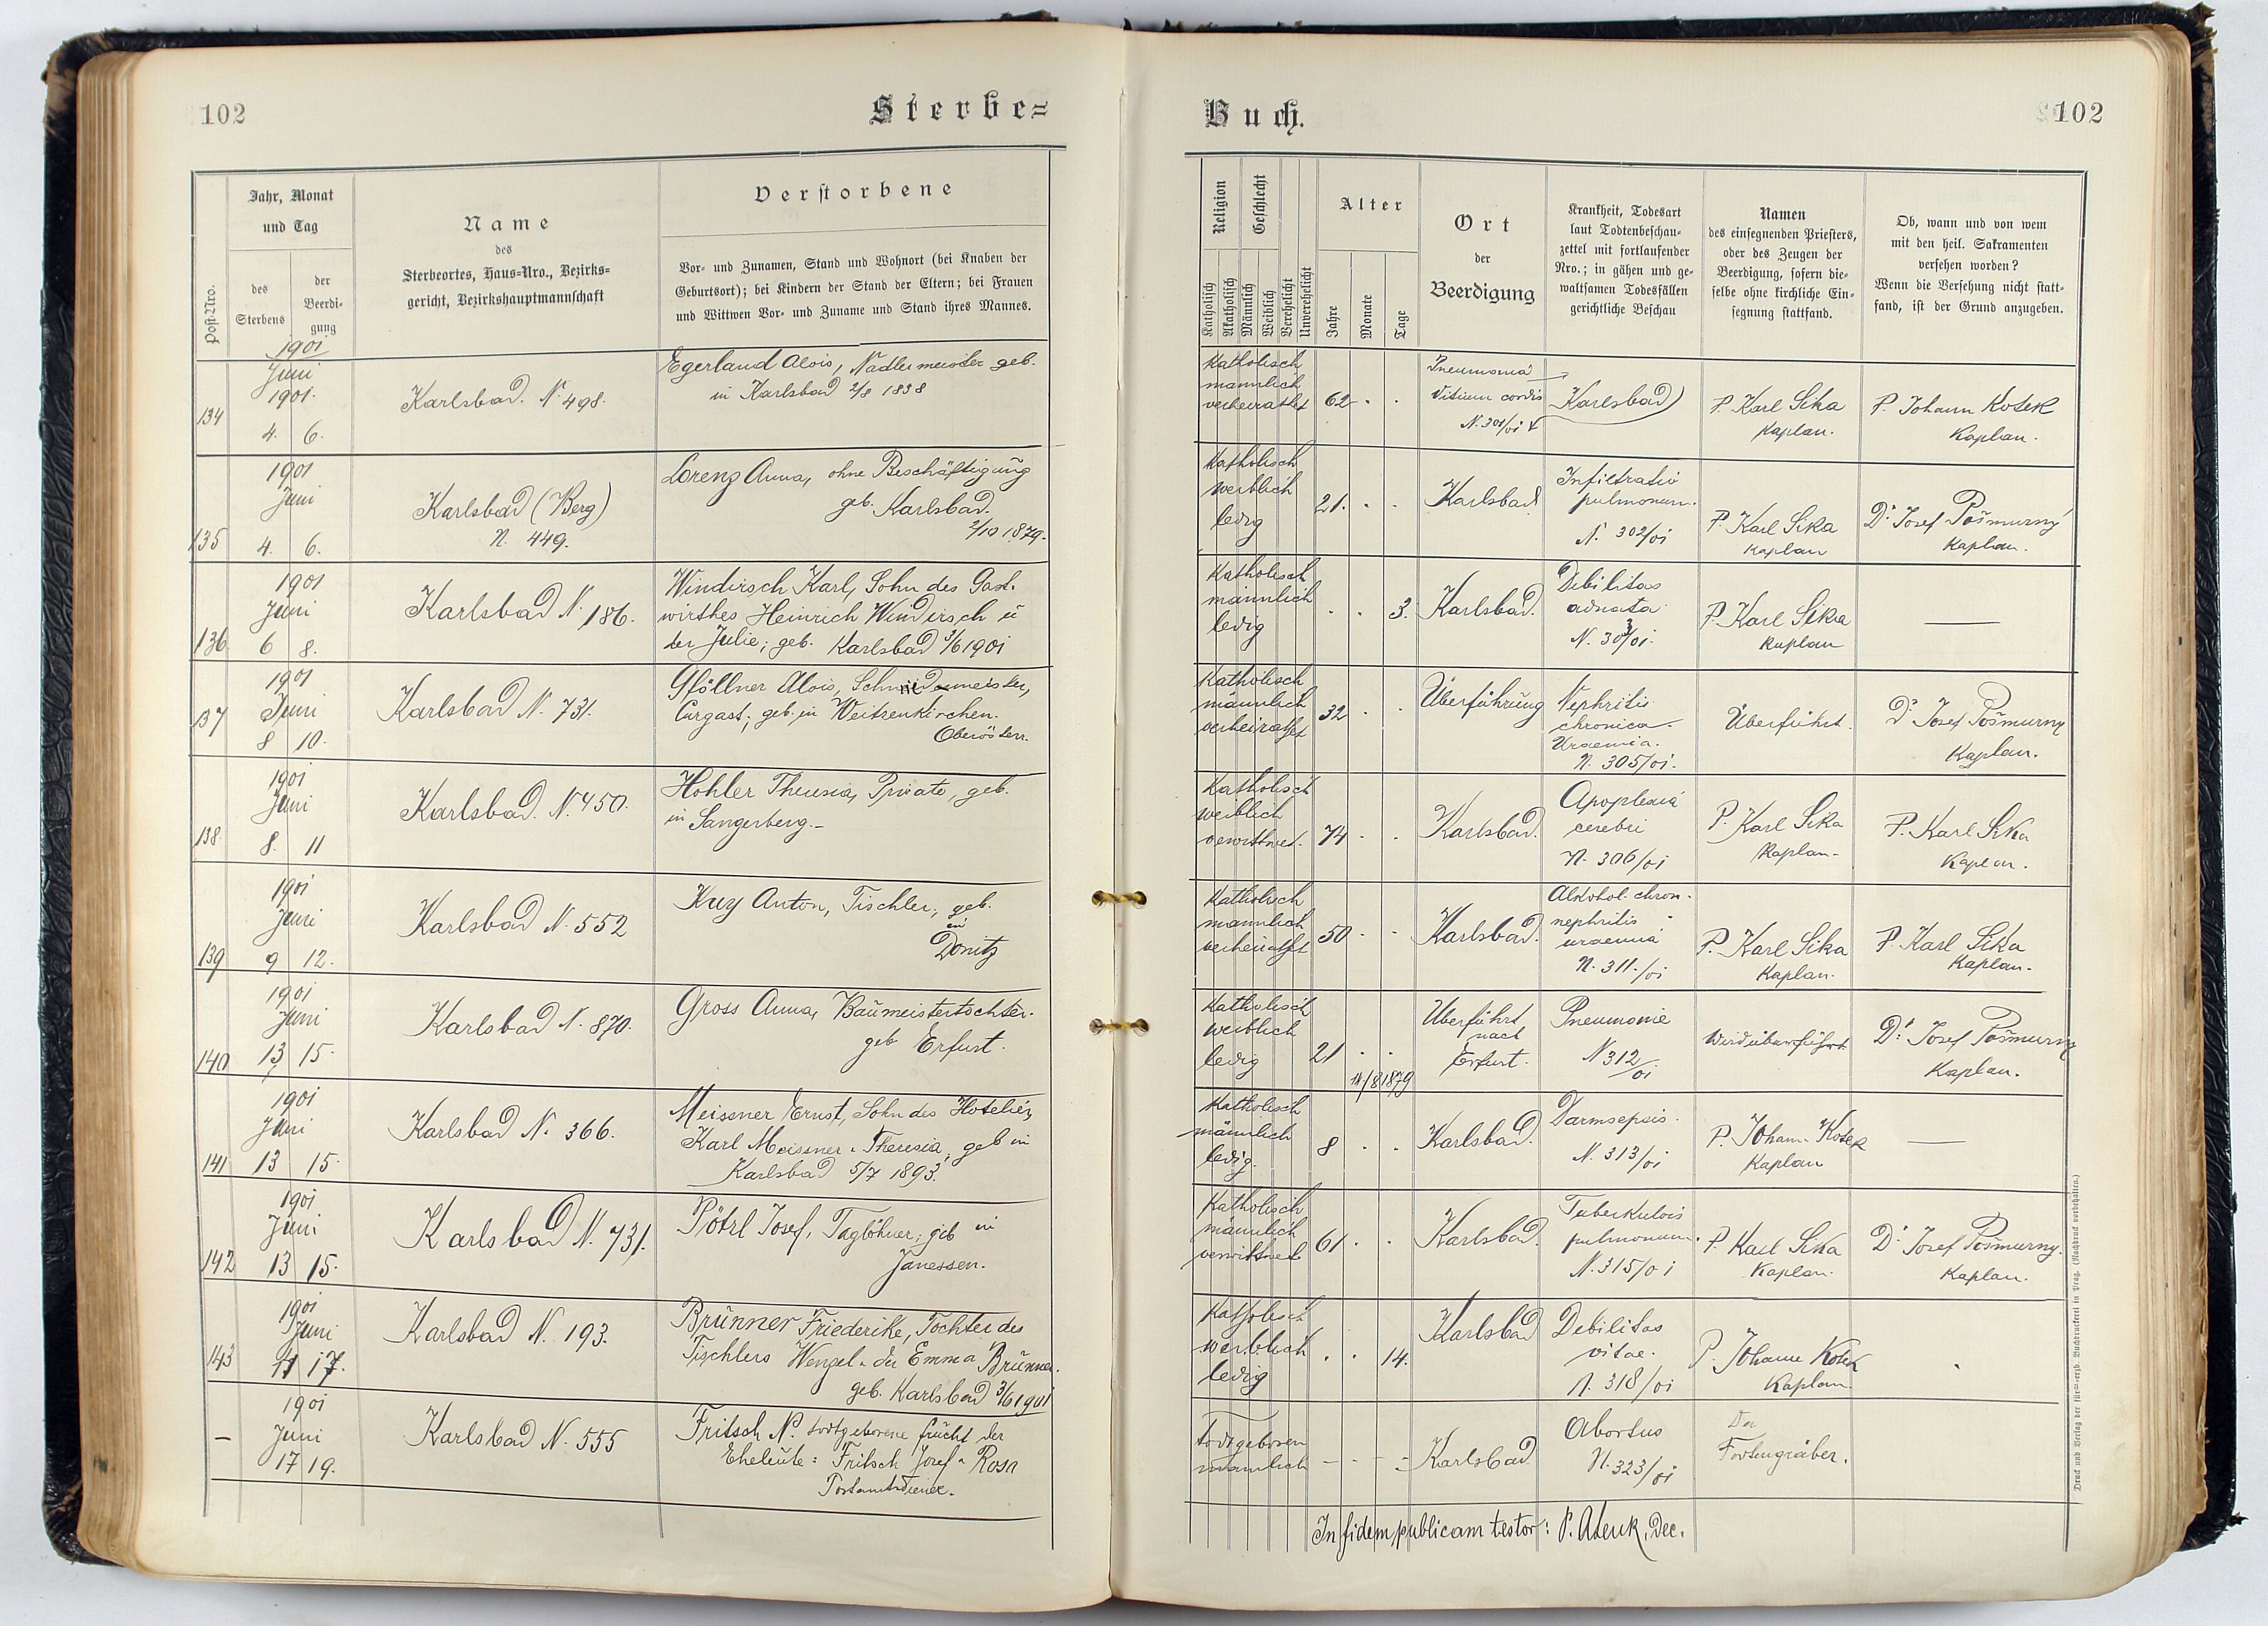 102
Sterbe=
Post-Nro.
Jahr, Monat
und Tag
des
Sterbens
der
Beerdi-
gung
Name
des
Sterbeortes, Haus-Nro., Bezirks=
gericht, Bezirkshauptmannschaft
Verstorbene
Vor- und Zunamen, Stand und Wohnort (bei Knaben der
Geburtsort); bei Kindern der Stand der Eltern; bei Frauen
und Wittwen Vor- und Zuname und Stand ihres Mannes.
1901
Juni
1901.
134
4. 6.
Karlsbad. N. 498.
Egerland Alois, Nadlermeister geb.
in Karlsbad 2/8 1838
1901
Juni
135 4. 6.
Karlsbad (Berg)
N. 449.
Lorenz Anna, ohne Beschäftigung
geb. Karlsbad.
2/10 1879.
1901
Juni
136 6 8.
Karlsbad N. 186.
Windirsch Karl, Sohn des Gast-
wirthes Heinrich Windirsch u
der Julie; geb. Karlsbad 3/6 1901
1901
137 Juni
8 10.
Karlsbad N. 731.
Gföllner Alois, Schmiedemeister,
Curgast; geb. in Weitzenkirchen.
Oberösterr.
1901
Juni
138. 8. 11
Karlsbad. N. 450.
Hohler Theresia, Private, geb.
in Sangerberg.-
1901
Juni
139 9 12.
Karlsbad N. 552
Kuy Anton, Tischler, geb.
in
Donitz
1901
Juni
140 13 15.
Karlsbad N. 870.
Gross Anna, Baumeisterstochter.
geb Erfurt.
1901
Juni
141 13 15.
Karlsbad N. 366.
Meissner Ernst, Sohn des Hoteliers
Karl Meissner u Theresia, geb in
Karlsbad 5/7 1893.
1901
Juni
142 13 15.
Karlsbad N. 731.
Pötzl Josef, Taglöhner, geb in
Janessen.
1901
Juni
143 17.
Karlsbad N. 193.
Brünner Friederike, Tochter des
Tischlers Wenzel u der Emma Brünner.
geb. Karlsbad 3/6 1901
1901
— Juni
17 19.
Karlsbad N. 555
Fritsch N. todtgeborene frucht der
Eheleute: Fritsch Josef u Rosa
Postamtsdiener.
Buch.
102
Religion
Katholisch
Akatholisch
Geschlecht
Männlich
Weiblich
Verehelicht
Unverehelicht
Alter
Jahre
Monate
Tage
Ort
der
Beerdigung
Krankheit, Todesart
laut Todtenbeschau-
zettel mit fortlaufender
Nro.; in gähen und ge-
waltsamen Todesfällen
gerichtliche Beschau
Namen
des einsegnenden Priesters,
oder des Zeugen der
Beerdigung, sofern die-
selbe ohne kirchliche Ein-
segnung stattfand.
Ob, wann und von wem
mit den heil. Sakramenten
versehen worden?
Wenn die Versehung nicht statt-
fand, ist der Grund anzugeben.
Katholisch
männlich
verheirathet 62 . .
Pneumonia
Vitium cordis
N. 301/01
Karlsbad
P. Karl Sika
Kaplan.
P. Johann Kotek
Kaplan.
Katholisch
weiblich
ledig
21. . .
Karlsbad
Infiltratio
pulmonum.
N. 302/01
P. Karl Sika
Kaplan
Dr. Josef Pošmurný
Kaplan.
Katholisch
männlich
ledig
. . 3.
Karlsbad.
Debilitas
adnata
N. 303/01.
P. Karl Sika
Kaplan
—
Katholisch
männlich
verheirathet
32 . .
Überführung
Nephritis
chronica.
Uraemia.
N. 305/01.
Überführt.
Dr. Josef Pošmurny
Kaplan.
Katholisch
weiblich
verwittwet.
74 . .
Karlsbad.
Apoplexia
cerebri
N. 306/01
P. Karl Sika
Kaplan-
P. Karl Sika
Kaplan.
Katholisch
männlich
verheirathet
50 . .
Karlsbad.
Alkohol. chron.
nephritis
uraemia
N. 311./01
P. Karl Sika
Kaplan.
P. Karl Sika
Kaplan.
Katholisch
weiblich
ledig
21 . .
14/8 1879
Überführt
nach
Erfurt.
Pneumonie
N 312/01
Wird überführt.
Dr. Josef Pošmurny
Kaplan.
Katholisch
männlich
ledig.
8 . .
Karlsbad.
Darmsepsis.
N. 313/01
P. Johann Kotek
Kaplan
—
Katholisch
männlich
verwittwet
61 . .
Karlsbad.
Tuberkulois
pulmonum.
N. 315/01
P. Karl Sika
Kaplan.
Dr. Josef Pošmurny.
Kaplan.
Katholisch
weiblich
ledig
. . 14.
Karlsbad
Debilitas
vitae.
N. 318/01
P. Johann Kotek
Kaplan.
Todtgeboren
männlich
- - -
Karlsbad
Abortus
N. 323/01
Der
Todtengräber.
In fidem publicam testor: P. , Dec.
Druck und Verlag der fürst-erzb. Buchdruckerei in Prag. (Nachdruck vorbehalten.)